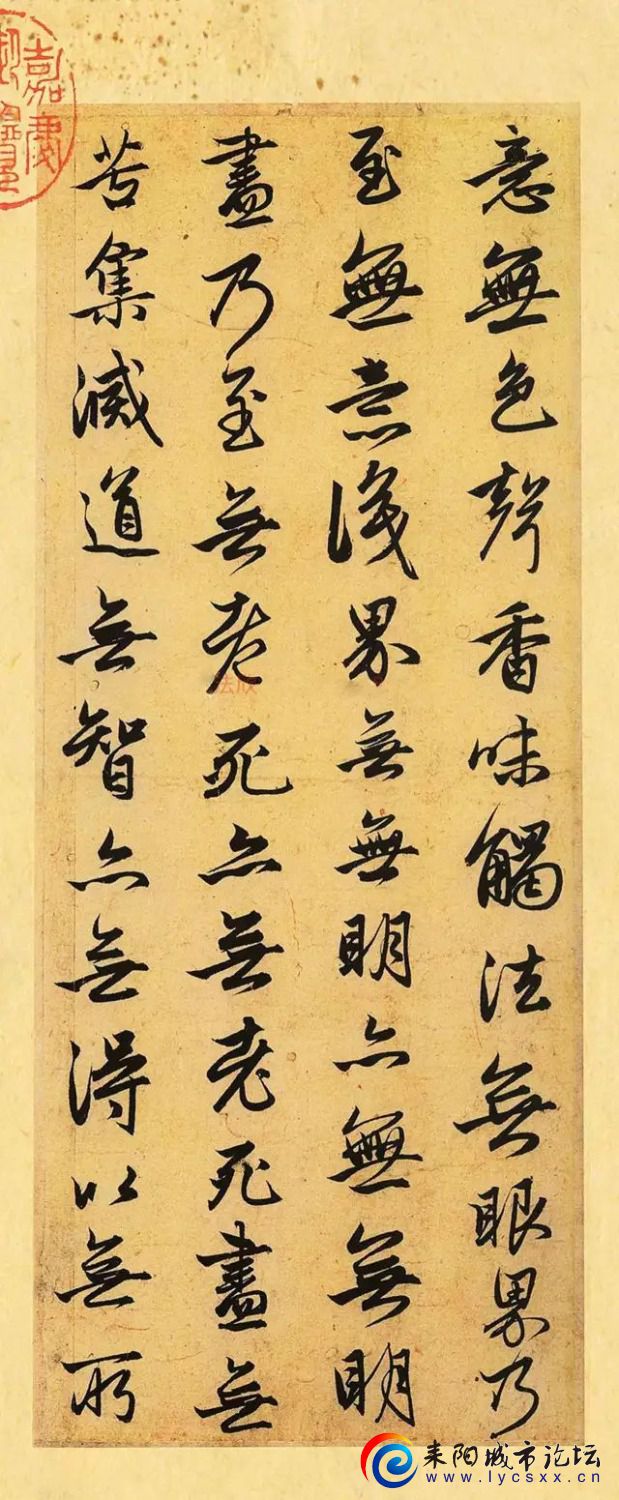 意無色聲香味觸法無眼界乃
至無意識界無無明亦無無明
盡乃至無老死亦無老死盡無
苦集滅道無智亦無得以無所
嘉慶
耒阳城市论坛
www.lycsxx.cn